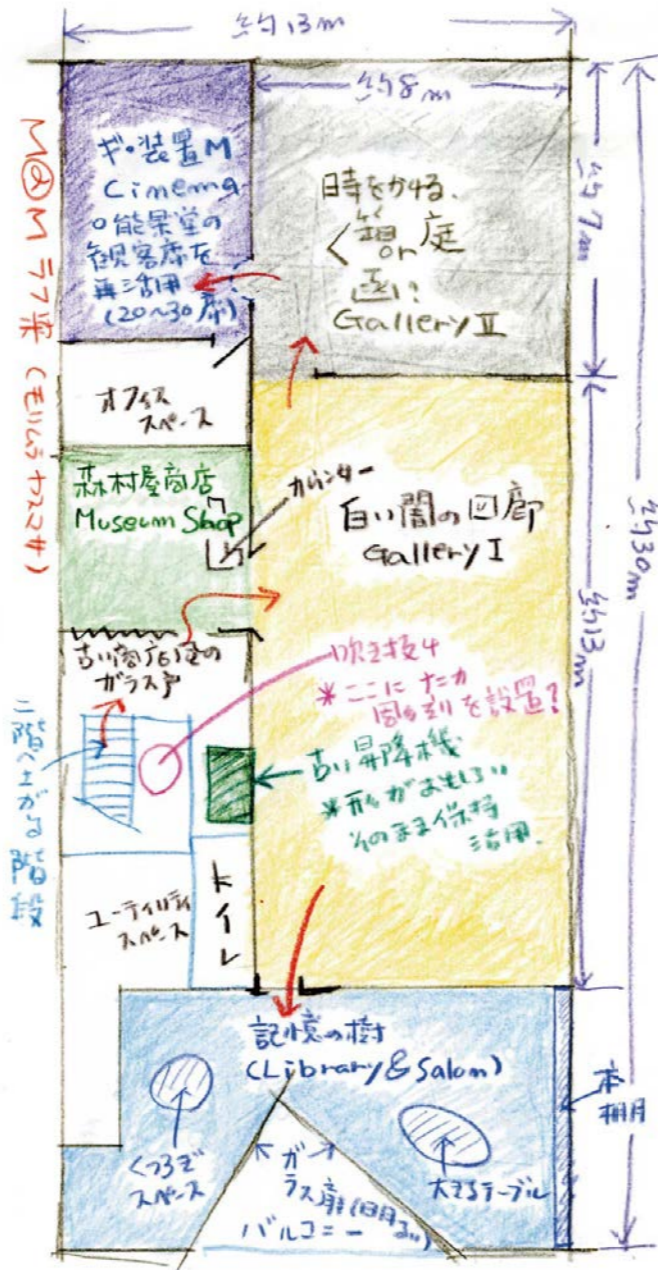 約13m
約8m
約7m
約30m
約13m
M@M ラフ案 (もりむらヤスマサ)
ギ・装置M
Cinema
○能楽堂の
観客席を
再活用
(20〜30席)
時をかける、
Gallery II
オフィス
スペース
森村屋商店
Museum Shop
カウンター
白い闇の回廊
Gallery I
古い商店街の
ガラス戸
吹き抜け
*ここにナニカ
を設置?
古い昇降機
*形がおもしろい
そのまま保持
活用。
二階へ上がる階段
ユーティリティ
スペース
トイレ
記憶の樹
(Library & Salon)
本棚
くつろぎ
スペース
大きるテーブル
ガラス扉(明るい)
バルコニー